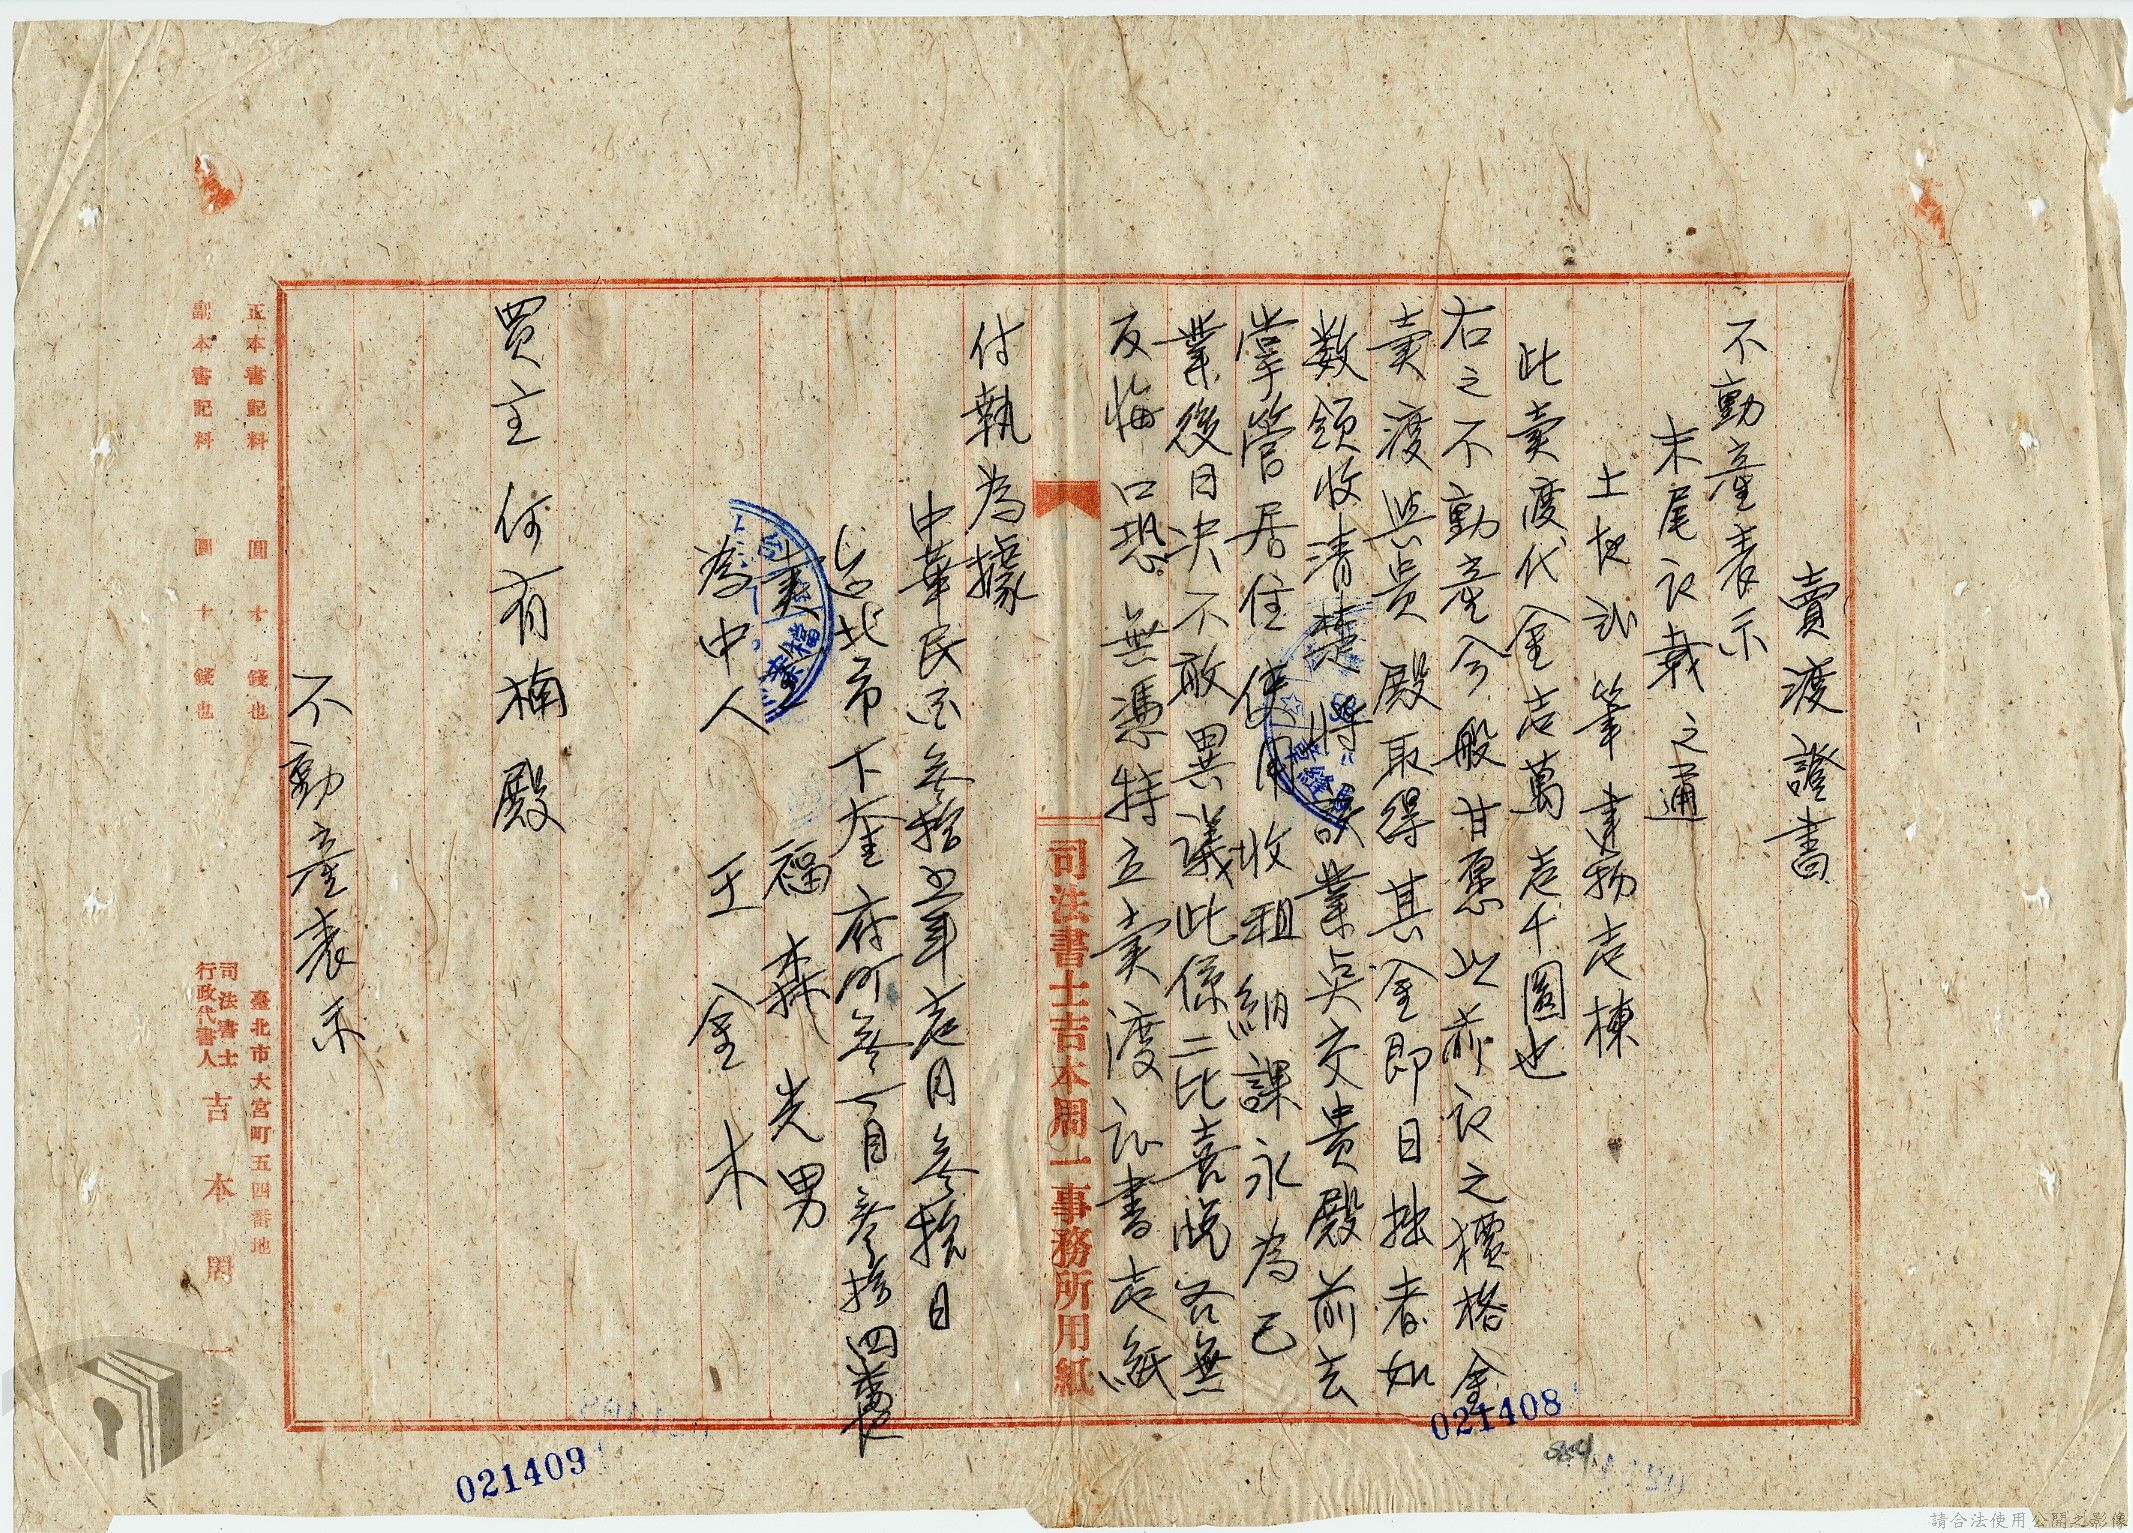 賣渡證書
不動産表示
末尾記載之通
土地
筆建物壱棟
此賣渡代金壱萬壱千圓也
右之不動産今般甘愿以前記之價格金
賣渡與貴殿取得其金即日拙者如
数領收清楚將該業点交貴殿前去
掌管居住使用收租納課永為己
業後日决不敢異議此係二比喜悦各無
反悔口恐無憑特立賣渡証書壱紙
付執為據
中華民国参拾五年壱月参拾日
台北市下奎府町参丁目参拾四番
賣主 福森光男
為中人 王金木
買主何有楠殿
不動産表示
司法書士吉本周一事務所用紙
正本書記料 圓 十 錢也
副本書記料 圓 十 錢也
臺北市大宮町五四番地
司法書士
行政代書人
吉本周一
021408
021409
請合法使用公開之影像